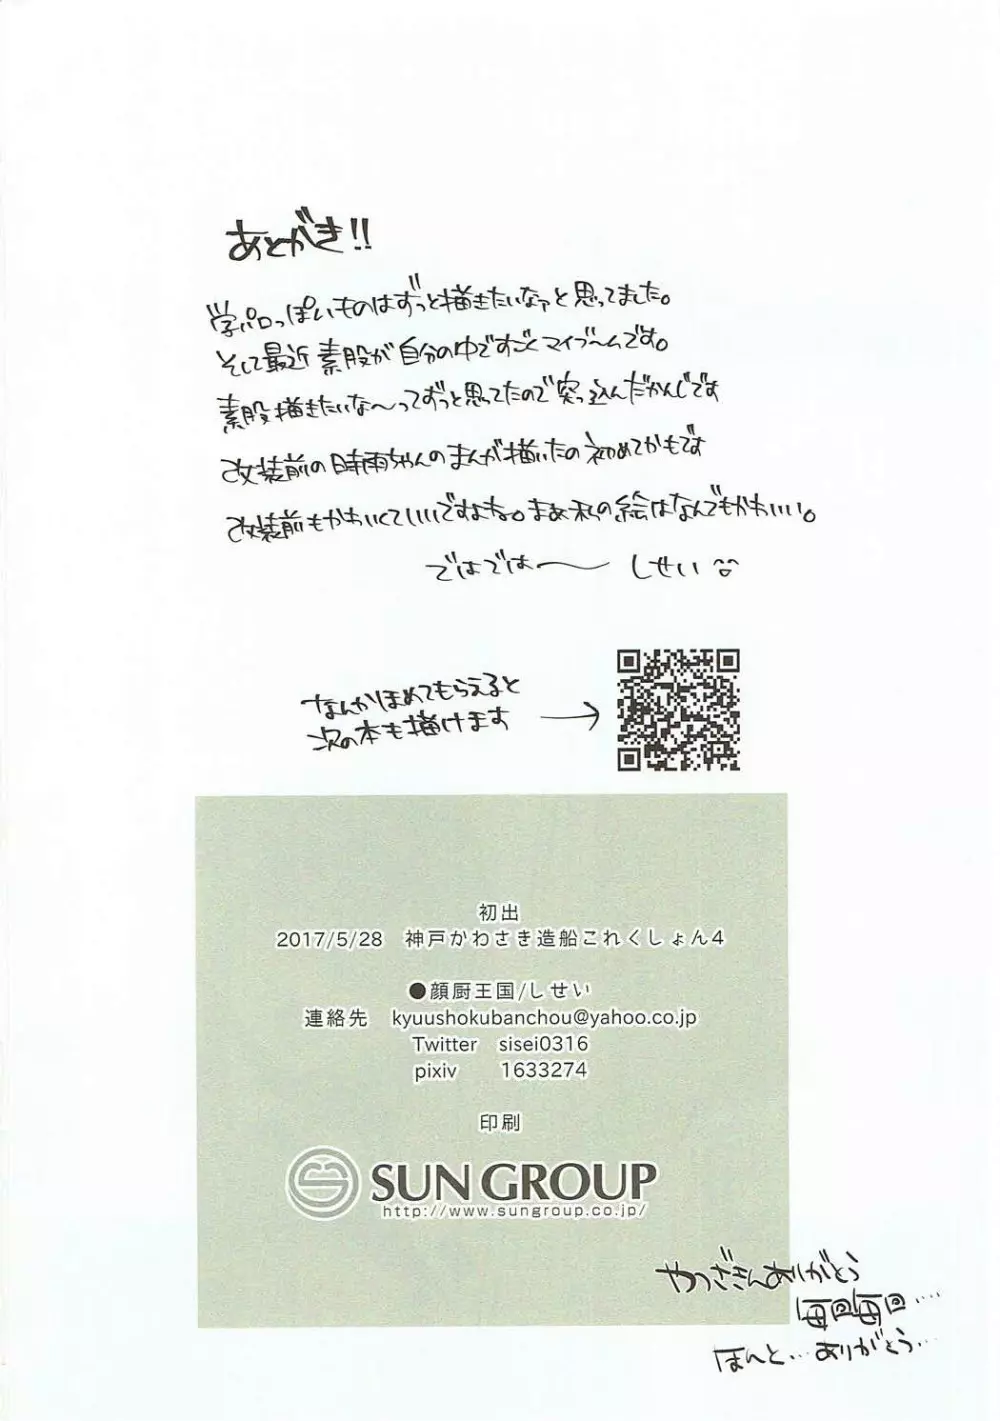 あとがき!!
学パロっぽいものはずっと描きたいなァと思ってました。
そして最近素股が自分の中ですごくマイブームです。
素股描きたいな〜ってずっと思ってたので突っ込んだかんじです
改装前の時雨ちゃんのまんが描いたの初めてかもです
改装前もかわいくていいですよね。まぁ私の絵はなんでもかわいい。
ではでは〜 しせい
なんかほめてもらえると
次の本も描けます →
初出
2017/5/28 神戸かわさき造船これくしょん4
●顔厨王国/しせい
連絡先 kyuushokubanchou@yahoo.co.jp
Twitter sisei0316
pixiv 1633274
印刷
SUN GROUP
http://www.sungroup.co.jp/
やつざきんありがとう
毎回毎回‥‥
ほんと…ありがとう…